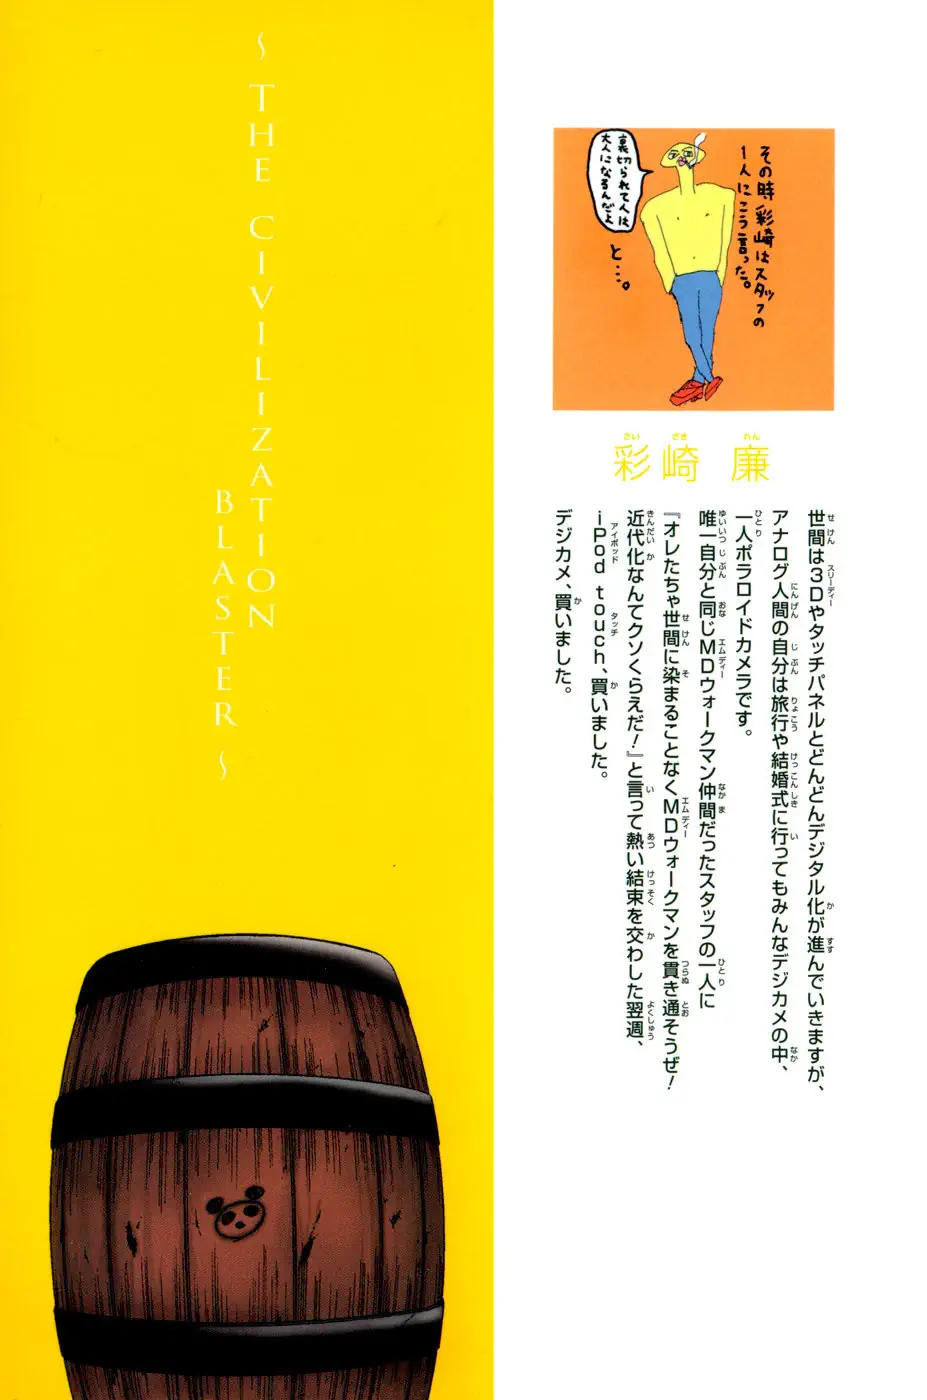 その時彩崎はスタッフの
1人にこう言った。
裏切られて人は
大人になるんだよ
と…。
彩崎 廉
さい ざき れん
世間は3Dやタッチパネルとどんどんデジタル化が進んでいきますが、
アナログ人間の自分は旅行や結婚式に行ってもみんなデジカメの中、
一人ポラロイドカメラです。
唯一自分と同じMDウォークマン仲間だったスタッフの一人に
『オレたちゃ世間に染まることなくMDウォークマンを貫き通そうぜ!
近代化なんてクソくらえだ!』と言って熱い結束を交わした翌週、
iPod touch、買いました。
デジカメ、買いました。
~ THE CIVILIZATION
BLASTER ~